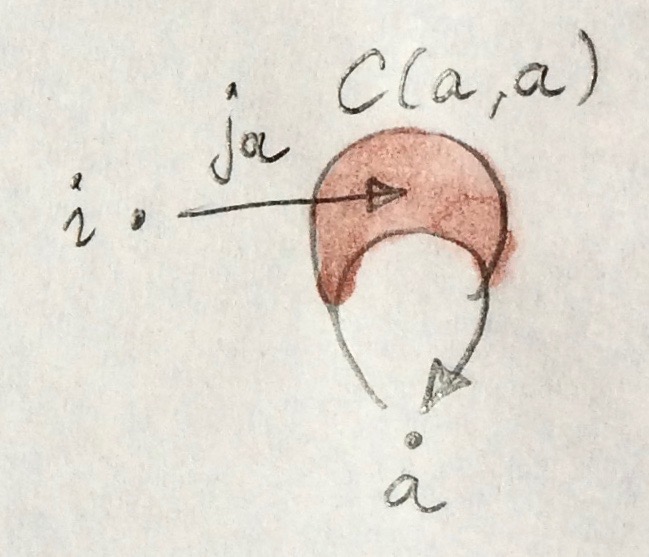 C(a,a)
ja
i
a